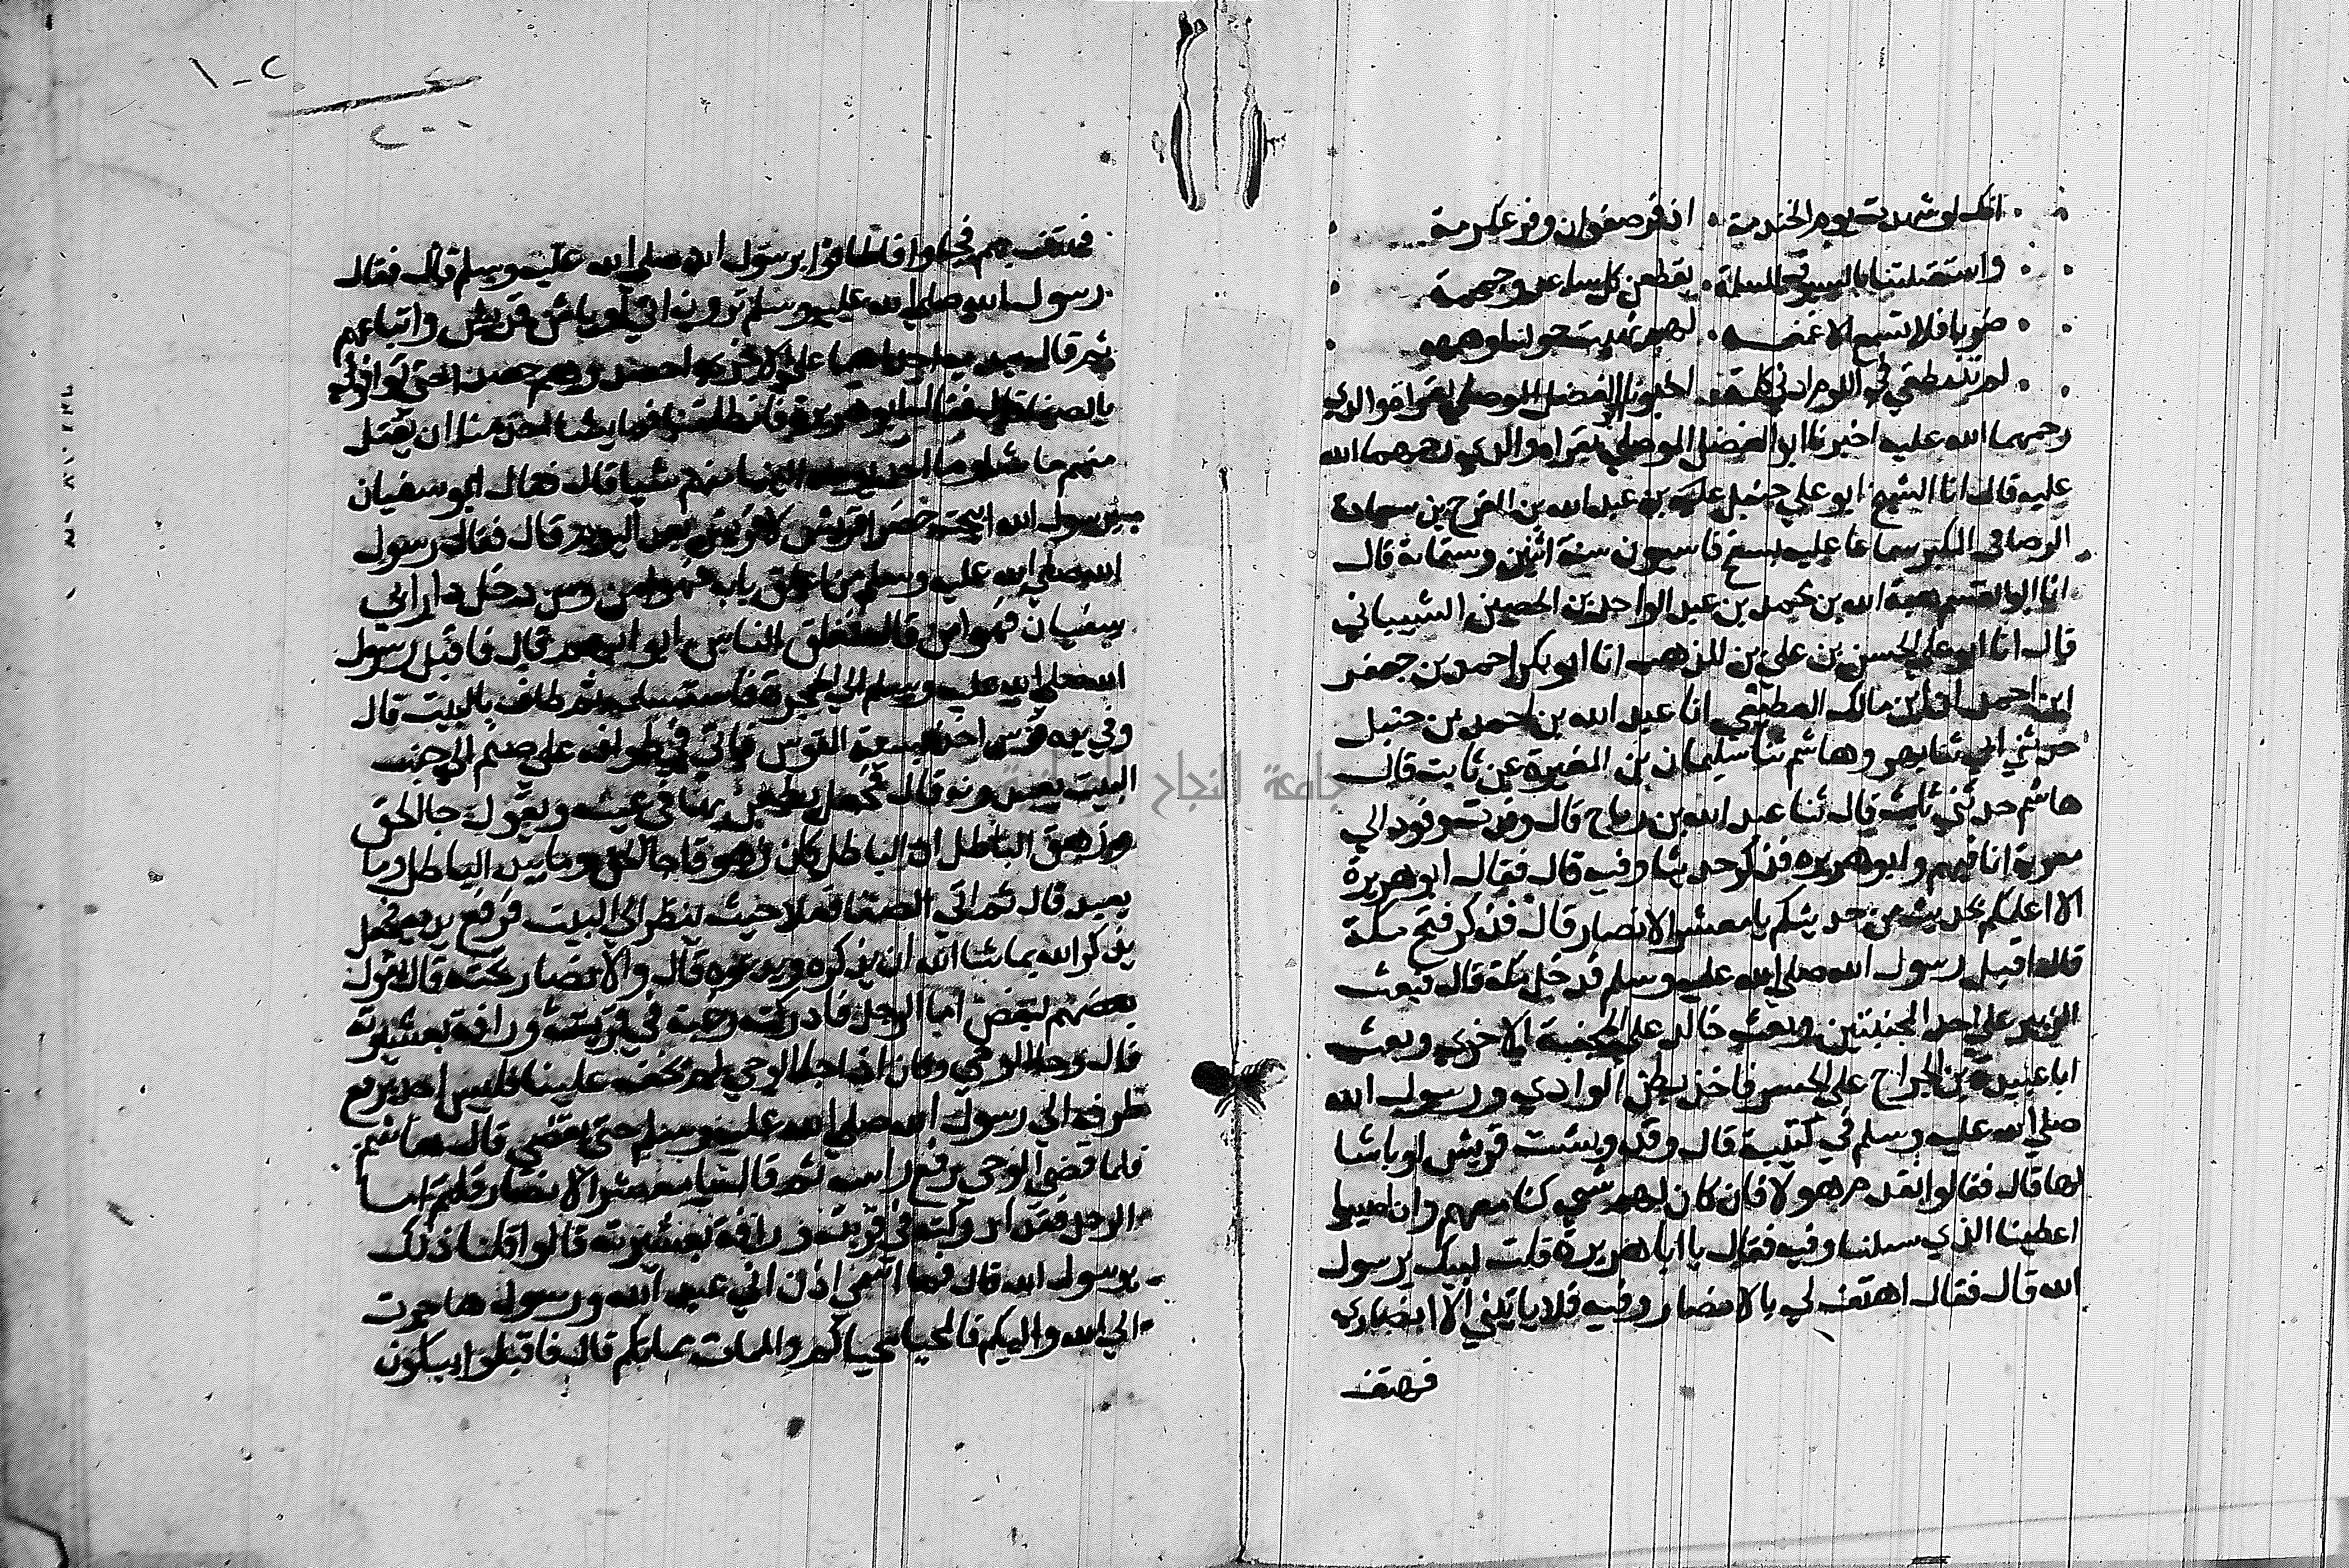 انك لو شهدت يوم الخندمة . اذ فر صفوان وفر عكرمة
واستقبلتنا بالسيوف المسلمة . يقطعن كل ساعد وجمجمة
ضربا فلا تسمع الا غمغمه . لهم نهيت حولنا وهمهمه
لم تنطقي في اللوم ادنى كلمة . اخبرنا ابو الفضل الموصلي بقراة والدي
رحمهما الله عليه اخبرنا ابو الفضل الموصلي بقراة والدي رحمهما الله
عليه قال انا الشيخ ابو علي حنبل بن عبد الله بن الفرج بن سعادة
الرصافي المكبر سماعا عليه بسفح قاسيون سنة اثنين وستماية قال
انا ابو القسم هبة الله بن محمد بن عبد الواحد بن الحصين الشيباني
قال انا ابو علي الحسن بن علي بن المذهب انا ابو بكر احمد بن جعفر
ابن احمد بن مالك القطيعي انا عبد الله بن احمد بن حنبل
حدثني ابي ثنا بهز وهاشم ثنا سليمان بن المغيرة عن ثابت قال
هاشم حدثني ثابت قال ثنا عبد الله بن رباح قال وفدت وفود الي
معوية انا فيهم وابو هريره فذكر حديثا وفيه قال فقال ابو هريرة
الا اعلمكم بحديث من حديثكم يا معشر الانصار قال فذكر فتح مكة
قال اقبل رسول الله صلي الله عليه وسلم فدخل مكة قال فبعث
الزبير علي احد المجنبتين وبعث خالد علي المجنبة الاخري وبعث
ابا عبيدة بن الجراح علي الحسر فاخذ بطن الوادي ورسول الله
صلي الله عليه وسلم في كتيبة قال وقد وبشت قريش اوباشا
لها قال فقالوا نقدم هولا فان كان لهم شي كنا معهم وان اصيبوا
اعطينا الذي سيلنا وفيه فقال يا ابا هريرة قلت لبيك يرسول
الله قال فقال اهتف لي بالانصار وفيه فلا ياتيني الا انصاري
فهتف
فهتف بهم فجاوا فاطافوا برسول الله صلي الله عليه وسلم قال فقال
رسول الله صلي الله عليه وسلم ترون الي اوباش قريش واتباعهم
ثم قال بيديه احداهما علي الاخري احصدوهم حصدا حتي توافوني
بالصفا قال فقال ابو هريرة فانطلقنا فما يشا احد منا ان يقتل
منهم ما شا وما احد يوجه الينا منهم شيا قال فقال ابو سفيان
يرسول الله ابيحت خضرا قريش لا قريش بعد اليوم قال فقال رسول
الله صلي الله عليه وسلم من اغلق بابه فهو امن ومن دخل دار ابي
سفيان فهو امن قال فغلق الناس ابوابهم قال فاقبل رسول
الله صلي الله عليه وسلم الي الحجر فاستلمه ثم طاف بالبيت قال
وفي يده قوس اخذ بسية القوس فاتي في طوافه علي صنم الي جنب
البيت يعبدونه قال فجعل يطعن بها في عينه ويقول جا الحق
وزهق الباطل ان الباطل كان زهوقا جا الحق وما يبدي الباطل وما
يعيد قال ثم اتي الصفا فعلاه حيث ينظر الي البيت فرفع يديه فجعل
يذكر الله بما شا الله ان يذكره ويدعوه قال والانصار تحته قال يقول
بعضهم لبعض اما الرجل فادركته رغبة في قريته ورافة بعشيرته
قال وجا الوحي وكان اذا جا الوحي لم يخف علينا فليس احد يرفع
طرفه الي رسول الله صلي الله عليه وسلم حتي يقضي قال هاشم
فلما قضي الوحي رفع راسه ثم قال يا معشر الانصار قلتم اما
الرجل فقد ادركته في قريته ورافة بعشيرته قالوا قلنا ذلك
يرسول الله قال فما اسمي اذن اني عبد الله ورسوله هاجرت
الي الله واليكم فالمحيا محياكم والممات مماتكم قال فاقبلوا يبكون
جامعة النجاح